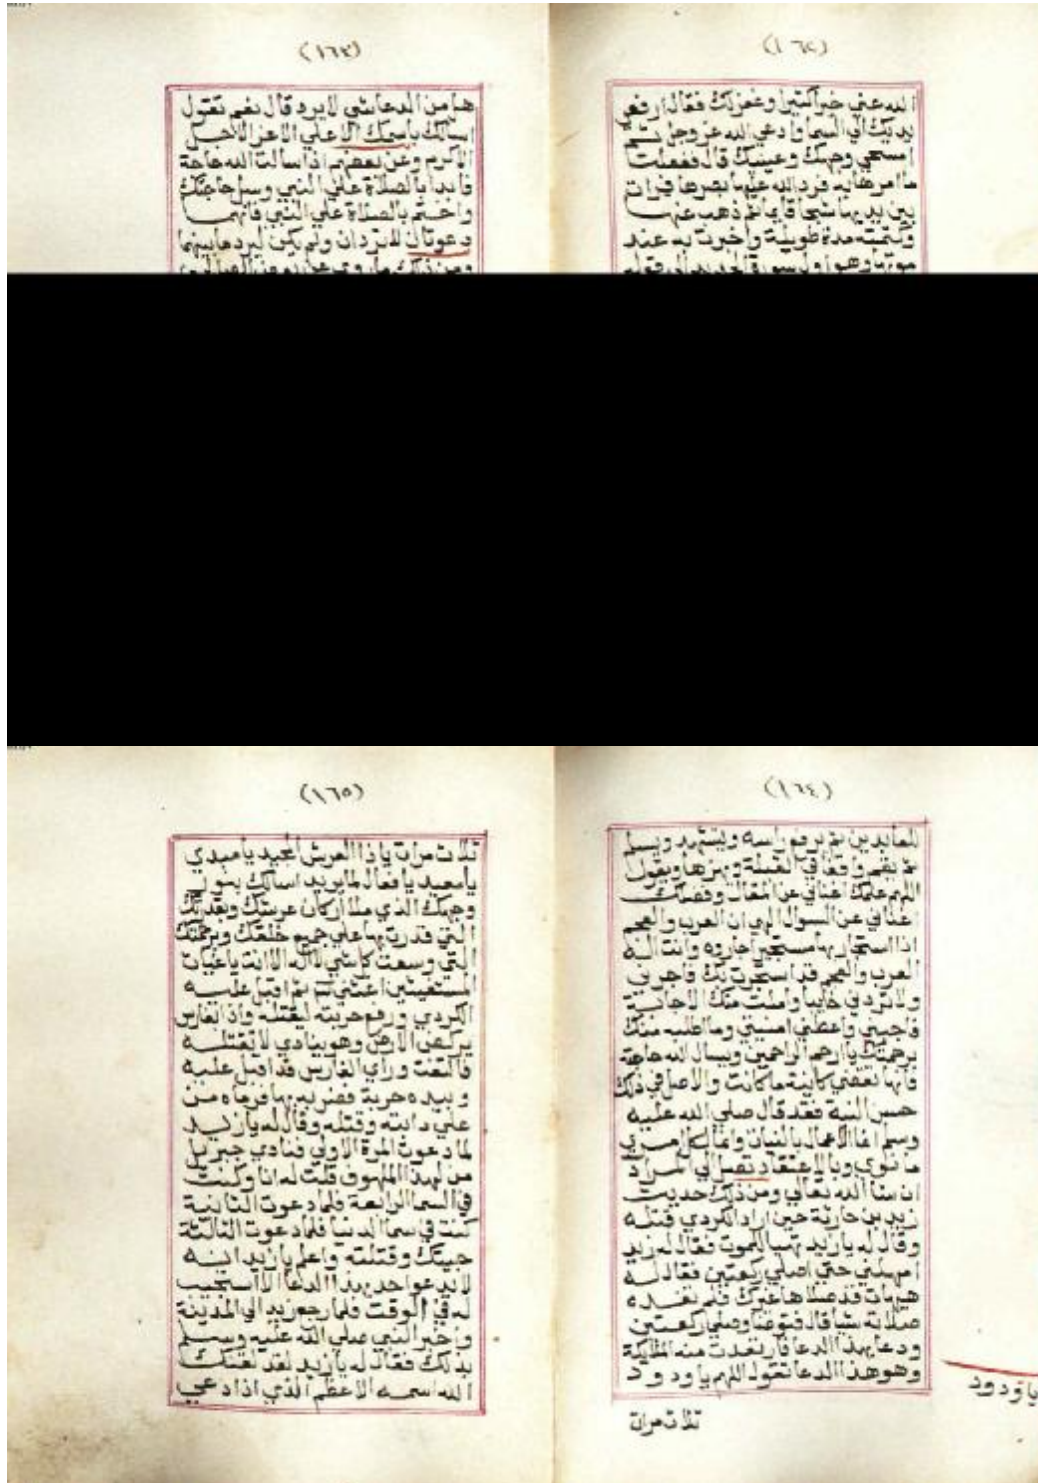 (١٦٢)
الله عني خيرا كثيرا وغفر لك فقال ارفعي
يديك الي السما وادعي الله عز وجل ثم
امسحي وجهك وعينيك قال ففعلت
ما امرها به فرد الله عليها بصرها فرات
بين يديها شيخا قايما ثم ذهب عنها
مدة طويلة واخبرت به عند
موتها وهو اول سورة الحديد الي قوله
(١٦٣)
هامن الدعا شي لا يرد قال نعم تقول
اسالك باسمك الاعلي الاعز الاجل
الاكرم وعن بعضهم اذا سالت الله حاجة
فابدا بالصلاة علي النبي وسل حاجتك
واختم بالصلاة علي النبي فانهما
دعوتان لا تردان ولم يكن ليرد ما بينهما
ومن ذلك ما روي عن بعض الصالحين
(١٦٤)
للعابدين ثم يرفع راسه ويتشهد ويسلم
ثم يقف واقفا في القبلة ويقول
اللهم علمك اغناني عن المقال وفضلك
اغناني عن السوال الهي ان العرب والعجم
اذا استجار بها مستجير اجاروه وانت اله
العرب والعجم قد استجرت بك فاجرني
ولا تردني خايبا وامنت منك الاجابة
فاجبني واعطني امنيتي وما اطلبه منك
برحمتك يا ارحم الراحمين ويسال الله حاجة
فانها تقضي كاينة ما كانت والاصل في ذلك
حسن النية فقد قال صلي الله عليه
وسلم انما الاعمال بالنيات وانما لكل امري
ما نوي وبالاعتقاد تصل الي المراد
ان شا الله تعالي ومن ذلك حديث
زيد بن حارثة حين اراد الكردي قتله
وقال له يا زيد تهيا للموت فقال له زيد
امهلني حتي اصلي ركعتين فقال له
هيهات قد صلاها غيرك فلم تفده
صلاته شيا قال فتوضا وصلي ركعتين
ودعا بهذا الدعا فارتعدت منه الملايكة
وهو هذا الدعا تقول اللهم يا ودود
يا ودود
ثلاث مرات
(١٦٥)
ثلاث مرات يا ذا العرش المجيد يا مبدي
يا معيد يا فعال لما يريد اسالك بنور
وجهك الذي ملا اركان عرشك وبقدرتك
التي قدرت بها علي جميع خلقك وبرحمتك
التي وسعت كل شي لا اله الا انت يا غياث
المستغيثين اغثني ثم اقبل عليه
الكردي ورفع حربته ليقتله واذا بفارس
يركض الارض وهو ينادي لا تقتله
فالتفت وراي الفارس قد اقبل عليه
وبيده حربة فضربه بها فرماه من
علي دابته وقتله وقال له يا زيد
لما دعوت المرة الاولي فنادي جبريل
من لهذا الملهوف قلت له انا وكنت
في السما الرابعة فلما دعوت الثانية
كنت في سما الدنيا فلما دعوت الثالثة
جيتك وقتلته واعلم يا زيد انه
لا يدعو احد بهذا الدعا الا استجيب
له في الوقت فلما رجع زيد الي المدينة
واخبر النبي صلي الله عليه وسلم
بذلك فقال له يا زيد لقد لقنك
الله اسمه الاعظم الذي اذا دعي